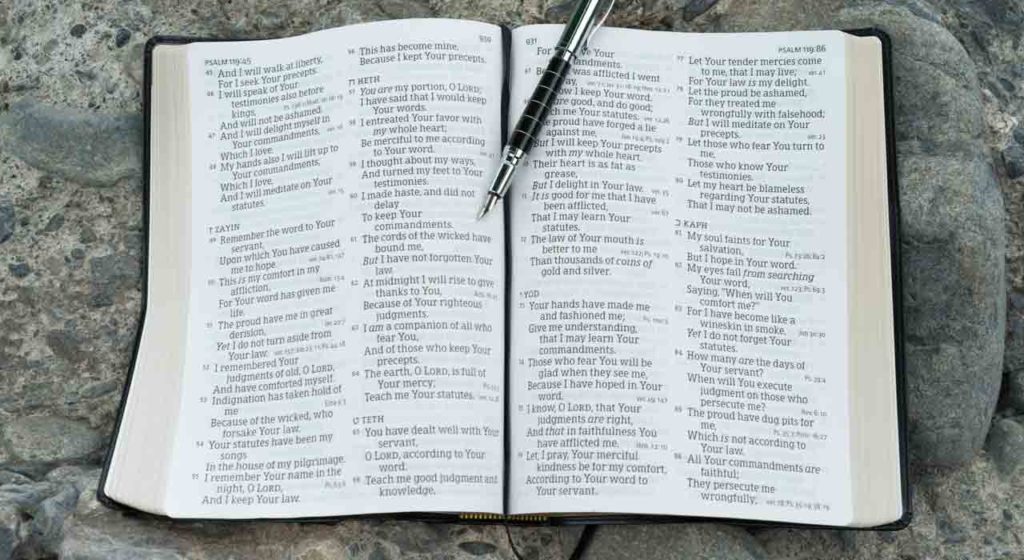 PSALM 119:45
45 And I will walk at liberty,
For I seek Your precepts.
46 I will speak of Your
testimonies also before
kings,
And will not be ashamed.
47 And I will delight myself in
Your commandments,
Which I love.
48 My hands also I will lift up to
Your commandments,
Which I love,
And I will meditate on Your
statutes.
ז ZAYIN
49 Remember the word to Your
servant,
Upon which You have caused
me to hope.
50 This is my comfort in my
affliction,
For Your word has given me
life.
51 The proud have me in great
derision,
Yet I do not turn aside from
Your law.
52 I remembered Your
judgments of old, O LORD,
And have comforted myself.
53 Indignation has taken hold of
me
Because of the wicked, who
forsake Your law.
54 Your statutes have been my
songs
In the house of my pilgrimage.
55 I remember Your name in the
night, O LORD,
And I keep Your law.
930
56 This has become mine,
Because I kept Your precepts.
ח HETH
57 You are my portion, O LORD;
I have said that I would keep
Your words.
58 I entreated Your favor with
my whole heart;
Be merciful to me according
to Your word.
59 I thought about my ways,
And turned my feet to Your
testimonies.
60 I made haste, and did not
delay
To keep Your
commandments.
61 The cords of the wicked have
bound me,
But I have not forgotten Your
law.
62 At midnight I will rise to give
thanks to You,
Because of Your righteous
judgments.
63 I am a companion of all who
fear You,
And of those who keep Your
precepts.
64 The earth, O LORD, is full of
Your mercy;
Teach me Your statutes.
ט TETH
65 You have dealt well with Your
servant,
O LORD, according to Your
word.
66 Teach me good judgment and
knowledge,
931
For Your
67 was afflicted I went
I keep Your word.
are good, and do good;
me Your statutes.
proud have forged a lie
against me,
But I will keep Your precepts
with my whole heart.
70 Their heart is as fat as
grease,
But I delight in Your law.
71 It is good for me that I have
been afflicted,
That I may learn Your
statutes.
72 The law of Your mouth is
better to me
Than thousands of coins of
gold and silver.
י YOD
73 Your hands have made me
and fashioned me;
Give me understanding,
that I may learn Your
commandments.
74 Those who fear You will be
glad when they see me,
Because I have hoped in Your
word.
75 I know, O LORD, that Your
judgments are right,
And that in faithfulness You
have afflicted me.
76 Let, I pray, Your merciful
kindness be for my comfort,
According to Your word to
Your servant.
PSALM 119:86
77 Let Your tender mercies come
to me, that I may live;
For Your law is my delight.
78 Let the proud be ashamed,
For they treated me
wrongfully with falsehood;
But I will meditate on Your
precepts.
79 Let those who fear You turn to
me,
Those who know Your
testimonies.
80 Let my heart be blameless
regarding Your statutes,
That I may not be ashamed.
כ KAPH
81 My soul faints for Your
salvation,
But I hope in Your word.
82 My eyes fail from searching
Your word,
Saying, "When will You
comfort me?"
83 For I have become like a
wineskin in smoke,
Yet I do not forget Your
statutes.
84 How many are the days of
Your servant?
When will You execute
judgment on those who
persecute me?
85 The proud have dug pits for
me,
Which is not according to
Your law.
86 All Your commandments are
faithful;
They persecute me
wrongfully;